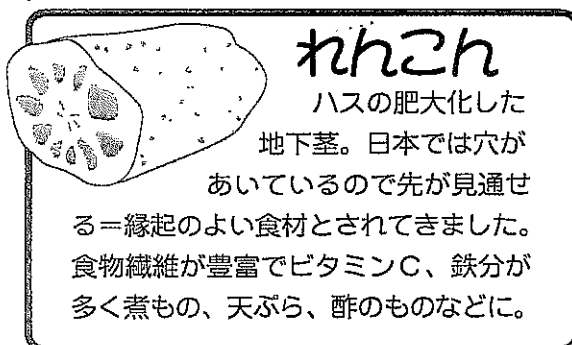 れんこん
ハスの肥大化した
地下茎。日本では穴が
あいているので先が見通せ
る＝縁起のよい食材とされてきました。
食物繊維が豊富でビタミンC、鉄分が
多く煮もの、天ぷら、酢のものなどに。